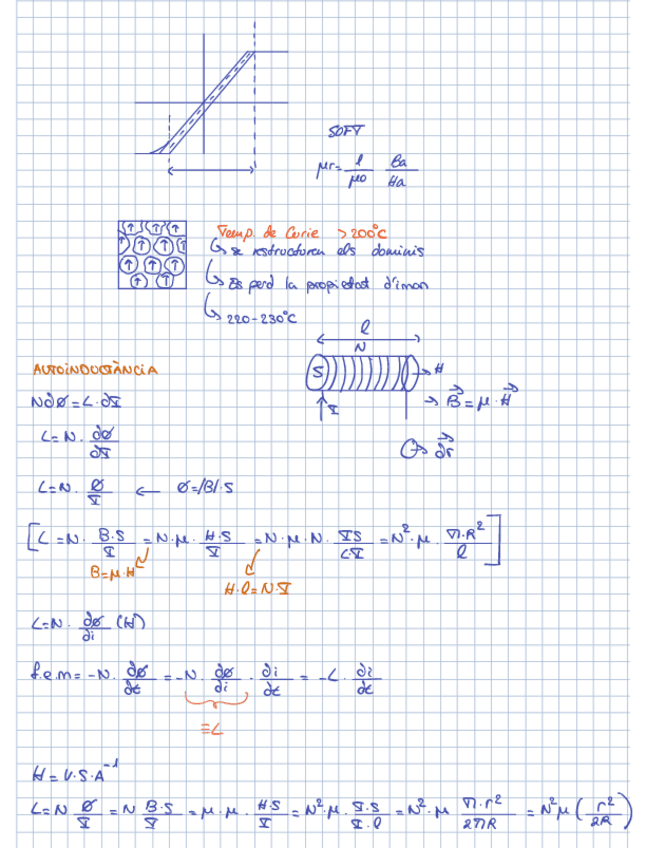 SOFT
μr = 1/μo Ba/Ha
Temp. de Curie > 200°C
↳ se restructuren els dominis
↳ Es perd la propietat d'iman
↳ 220-230°C
l
N
S → H
I → B = μ · H
dr
AUTOINDUCTÀNCIA
Ndø = L·dI
L = N · dø/dI
L = N · ø/I ← ø = /B/·S
[L = N · B·S/I = N·μ · H·S/I = N·μ·N · IS/LI = N²·μ · π·R²/l]
B = μ·H
H·l = N·I
L = N · dø/di (H)
f.e.m = -N · dø/dt = -N · dø/di · di/dt = -L · di/dt
= L
H = V·S·A⁻¹
L = N ø/I = N B·S/I = μ·μ · H·S/I = N²·μ · I·S/I·l = N²·μ π·r²/2πR = N²μ (r²/2R)